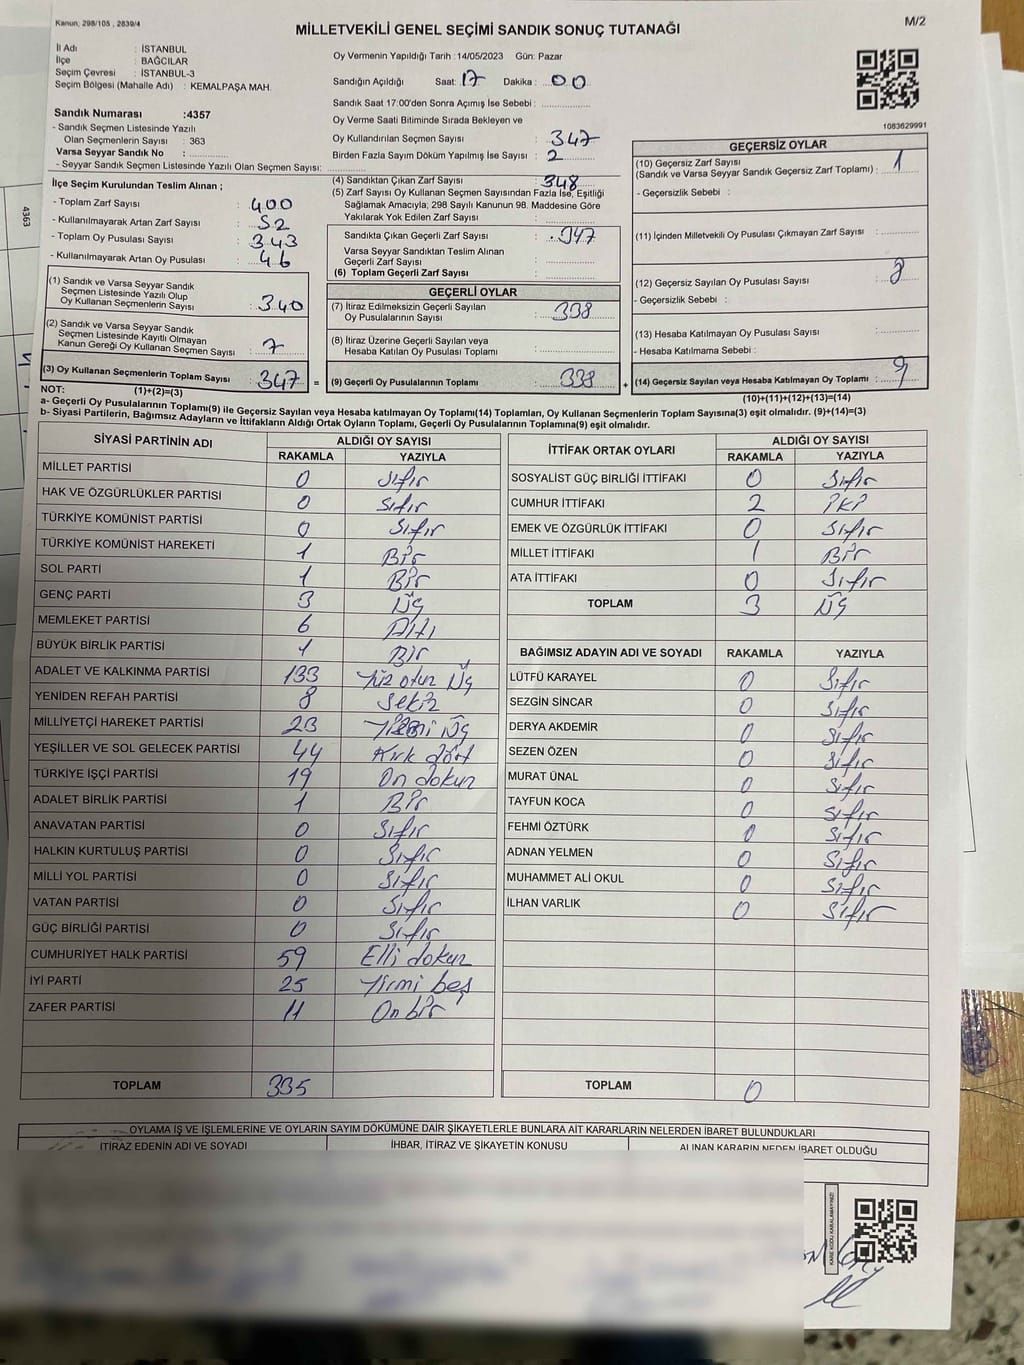 Kanun, 298/105 , 2839/4
M/2
MİLLETVEKİLİ GENEL SEÇİMİ SANDIK SONUÇ TUTANAĞI
İl Adı : İSTANBUL
İlçe : BAĞCILAR
Seçim Çevresi : İSTANBUL-3
Seçim Bölgesi (Mahalle Adı) : KEMALPAŞA MAH.
Oy Vermenin Yapıldığı Tarih :14/05/2023 Gün: Pazar
Sandığın Açıldığı Saat: 17 Dakika : 00
Sandık Saat 17:00'den Sonra Açımış İse Sebebi :
Oy Verme Saati Bitiminde Sırada Bekleyen ve
Oy Kullandırılan Seçmen Sayısı : 347
Birden Fazla Sayım Döküm Yapılmış İse Sayısı : 2
1083629991
Sandık Numarası :4357
- Sandık Seçmen Listesinde Yazılı
Olan Seçmenlerin Sayısı : 363
Varsa Seyyar Sandık No :
- Seyyar Sandık Seçmen Listesinde Yazılı Olan Seçmen Sayısı:
İlçe Seçim Kurulundan Teslim Alınan ;
- Toplam Zarf Sayısı : 400
- Kullanılmayarak Artan Zarf Sayısı : 52
- Toplam Oy Pusulası Sayısı : 343
- Kullanılmayarak Artan Oy Pusulası : 46
(1) Sandık ve Varsa Seyyar Sandık
Seçmen Listesinde Yazılı Olup
Oy Kullanan Seçmenlerin Sayısı : 340
(2) Sandık ve Varsa Seyyar Sandık
Seçmen Listesinde Kayıtlı Olmayan
Kanun Gereği Oy Kullanan Seçmen Sayısı : 7
(3) Oy Kullanan Seçmenlerin Toplam Sayısı : 347
(1)+(2)=(3)
(4) Sandıktan Çıkan Zarf Sayısı : 348
(5) Zarf Sayısı Oy Kullanan Seçmen Sayısından Fazla İse, Eşitliği
Sağlamak Amacıyla; 298 Sayılı Kanunun 98. Maddesine Göre
Yakılarak Yok Edilen Zarf Sayısı :
Sandıkta Çıkan Geçerli Zarf Sayısı : 347
Varsa Seyyar Sandıktan Teslim Alınan
Geçerli Zarf Sayısı :
(6) Toplam Geçerli Zarf Sayısı :
GEÇERLİ OYLAR
(7) İtiraz Edilmeksizin Geçerli Sayılan
Oy Pusulalarının Sayısı : 338
(8) İtiraz Üzerine Geçerli Sayılan veya
Hesaba Katılan Oy Pusulası Toplamı :
= (9) Geçerli Oy Pusulalarının Toplamı : 338
GEÇERSİZ OYLAR
(10) Geçersiz Zarf Sayısı
(Sandık ve Varsa Seyyar Sandık Geçersiz Zarf Toplamı) : 1
- Geçersizlik Sebebi :
(11) İçinden Milletvekili Oy Pusulası Çıkmayan Zarf Sayısı :
(12) Geçersiz Sayılan Oy Pusulası Sayısı :
- Geçersizlik Sebebi :
(13) Hesaba Katılmayan Oy Pusulası Sayısı :
- Hesaba Katılmama Sebebi :
+ (14) Geçersiz Sayılan veya Hesaba Katılmayan Oy Toplamı : 9
(10)+(11)+(12)+(13)=(14)
NOT:
a- Geçerli Oy Pusulalarının Toplamı(9) ile Geçersiz Sayılan veya Hesaba katılmayan Oy Toplamı(14) Toplamları, Oy Kullanan Seçmenlerin Toplam Sayısına(3) eşit olmalıdır. (9)+(14)=(3)
b- Siyasi Partilerin, Bağımsız Adayların ve İttifakların Aldığı Ortak Oyların Toplamı, Geçerli Oy Pusulalarının Toplamına(9) eşit olmalıdır.
SİYASİ PARTİNİN ADI ALDIĞI OY SAYISI
RAKAMLA YAZIYLA
MİLLET PARTİSİ 0 Sıfır
HAK VE ÖZGÜRLÜKLER PARTİSİ 0 Sıfır
TÜRKİYE KOMÜNİST PARTİSİ 0 Sıfır
TÜRKİYE KOMÜNİST HAREKETİ 1 Bir
SOL PARTİ 1 Bir
GENÇ PARTİ 3 Üç
MEMLEKET PARTİSİ 6 Altı
BÜYÜK BİRLİK PARTİSİ 1 Bir
ADALET VE KALKINMA PARTİSİ 133 Yüz otuz Üç
YENİDEN REFAH PARTİSİ 8 Sekiz
MİLLİYETÇİ HAREKET PARTİSİ 23 Yirmi Üç
YEŞİLLER VE SOL GELECEK PARTİSİ 44 Kırk dört
TÜRKİYE İŞÇİ PARTİSİ 19 On dokuz
ADALET BİRLİK PARTİSİ 1 Bir
ANAVATAN PARTİSİ 0 Sıfır
HALKIN KURTULUŞ PARTİSİ 0 Sıfır
MİLLİ YOL PARTİSİ 0 Sıfır
VATAN PARTİSİ 0 Sıfır
GÜÇ BİRLİĞİ PARTİSİ 0 Sıfır
CUMHURİYET HALK PARTİSİ 59 Elli dokuz
İYİ PARTİ 25 Yirmi beş
ZAFER PARTİSİ 11 On bir
TOPLAM 335
İTTİFAK ORTAK OYLARI ALDIĞI OY SAYISI
RAKAMLA YAZIYLA
SOSYALİST GÜÇ BİRLİĞİ İTTİFAKI 0 Sıfır
CUMHUR İTTİFAKI 2 İki
EMEK VE ÖZGÜRLÜK İTTİFAKI 0 Sıfır
MİLLET İTTİFAKI 1 Bir
ATA İTTİFAKI 0 Sıfır
TOPLAM 3 Üç
BAĞIMSIZ ADAYIN ADI VE SOYADI RAKAMLA YAZIYLA
LÜTFÜ KARAYEL 0 Sıfır
SEZGİN SİNCAR 0 Sıfır
DERYA AKDEMİR 0 Sıfır
SEZEN ÖZEN 0 Sıfır
MURAT ÜNAL 0 Sıfır
TAYFUN KOCA 0 Sıfır
FEHMİ ÖZTÜRK 0 Sıfır
ADNAN YELMEN 0 Sıfır
MUHAMMET ALİ OKUL 0 Sıfır
İLHAN VARLIK 0 Sıfır
TOPLAM 0
OYLAMA İŞ VE İŞLEMLERİNE VE OYLARIN SAYIM DÖKÜMÜNE DAİR ŞİKAYETLERLE BUNLARA AİT KARARLARIN NELERDEN İBARET BULUNDUKLARI
İTİRAZ EDENİN ADI VE SOYADI İHBAR, İTİRAZ VE ŞİKAYETİN KONUSU ALINAN KARARIN NEDEN İBARET OLDUĞU
KARE KODU KARALAMAYINIZ!
4363